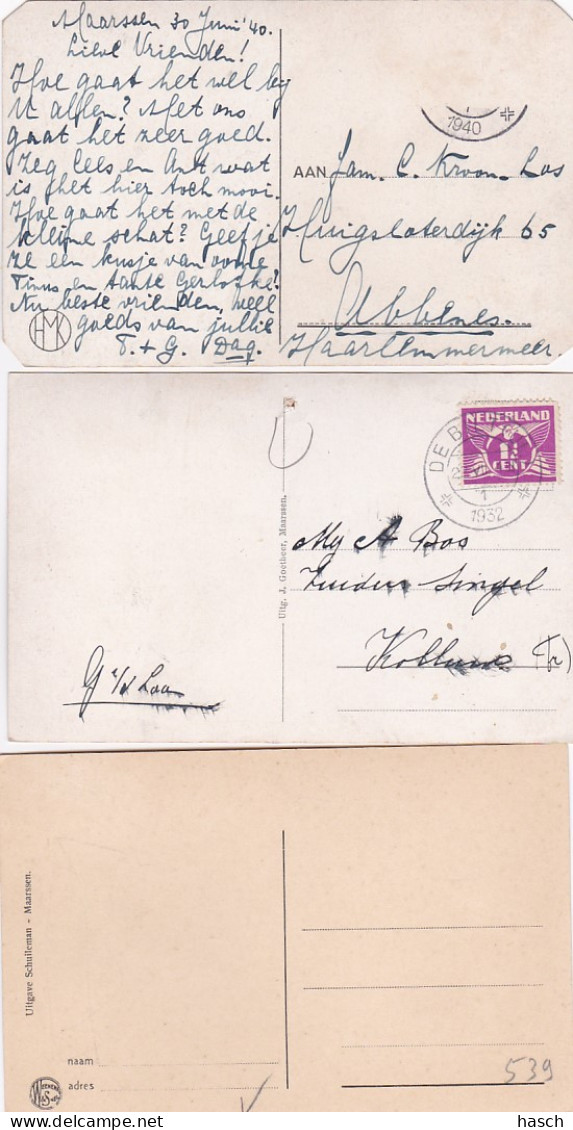 Maarssen 30 Juni '40.
Lieve Vrienden!
Hoe gaat het wel bij
U allen? Met ons
gaat het zeer goed.
Zeg Cees en Ant wat
is het hier toch mooi.
Hoe gaat het met de
kleine schat? Geef je
ze een kusje van oome
Tinus en tante Gerlofke?
Nu beste vrienden, veel
goeds van jullie
T. + G. Dag.
HMK
1940
AAN Fam. C. Kroon-Los
Huigsloterdijk 65
Abbenes.
Haarlemmermeer.
NEDERLAND
1½
CENT
DE BILT
1
1932
Uitg. J. Goetheer, Maarssen.
Mej A Bos
Zuider Singel
Kollum (Fr)
G v/d Laan
Uitgave Schuileman - Maarssen.
naam
adres
WEENENK
& SNEL
539
hasch